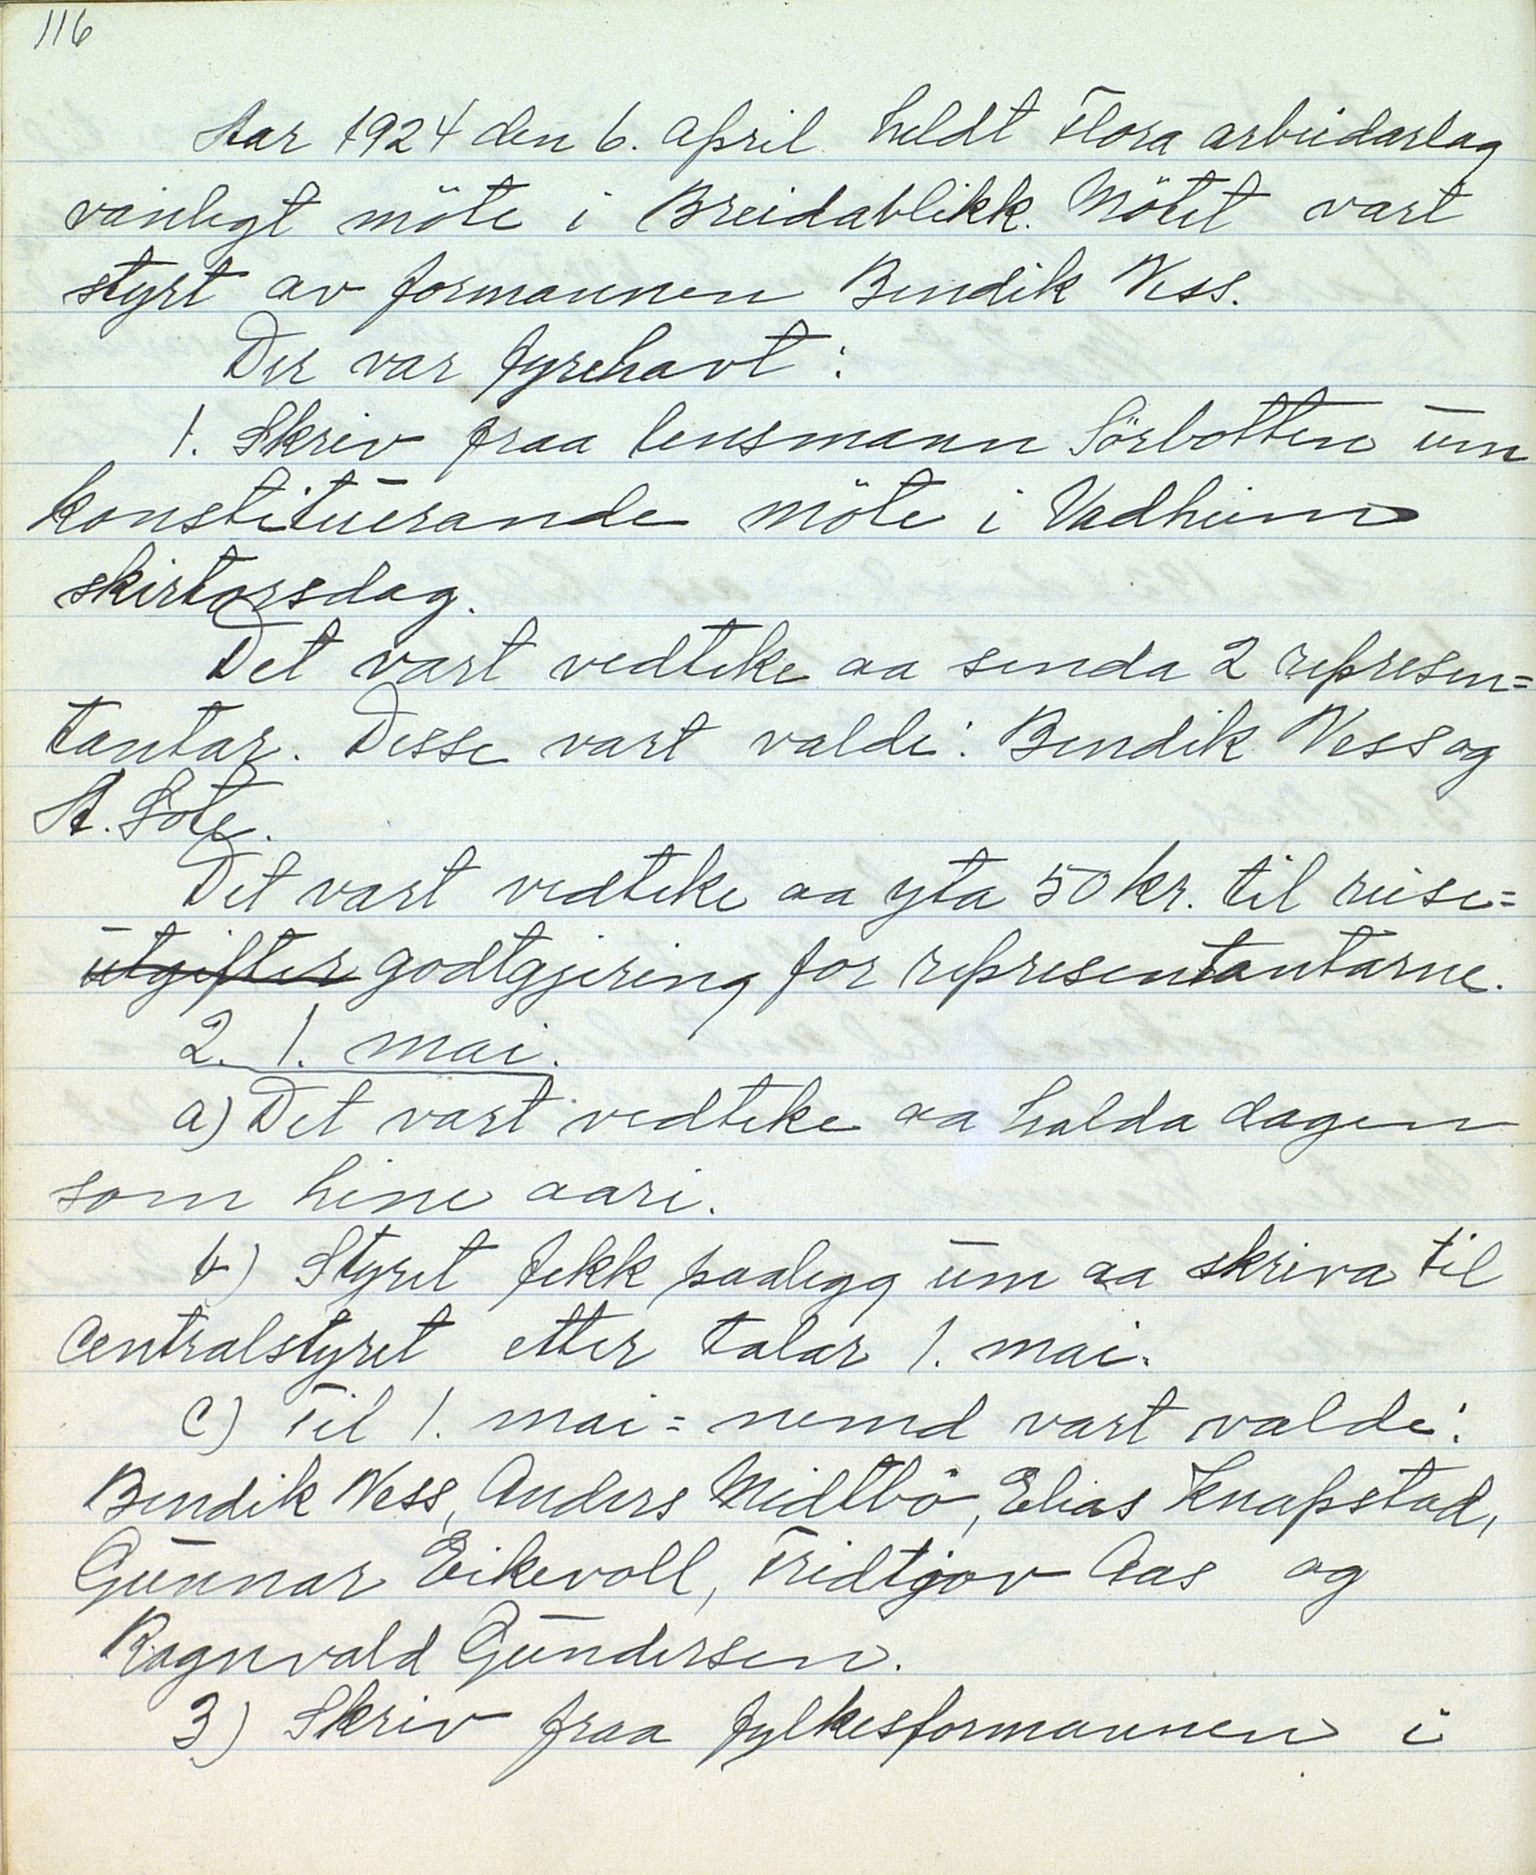 116
Aar 1924 den 6. april heldt Flora arbeidarlag
vanlegt möte i Breidablikk. Mötet vart
styrt av formannen Bendik Ness.
Der var fyrehavt:
1. Skriv fraa lensmann Sörbotten um
konstituerande möte i Vadheim
skirtorsdag.
Det vart vedteke aa senda 2 represen=
tantar. Desse vart valde: Bendik Ness og
A. Sote.
Det vart vedteke aa yta 50 kr. til reise=
utgifter godtgjering for representantarne.
2. 1. mai.
a) Det vart vedteke aa halda dagen
som hine aari.
b) Styret fekk paalegg um aa skriva til
Centralstyret etter talar 1. mai.
c) Til 1. mai=nemd vart valde:
Bendik Ness, Anders Midtbö, Elias Knapstad,
Gunnar Eikevoll, Fridtjov Aas og
Ragnvald Gundersen.
3) Skriv fraa fylkesformannen i